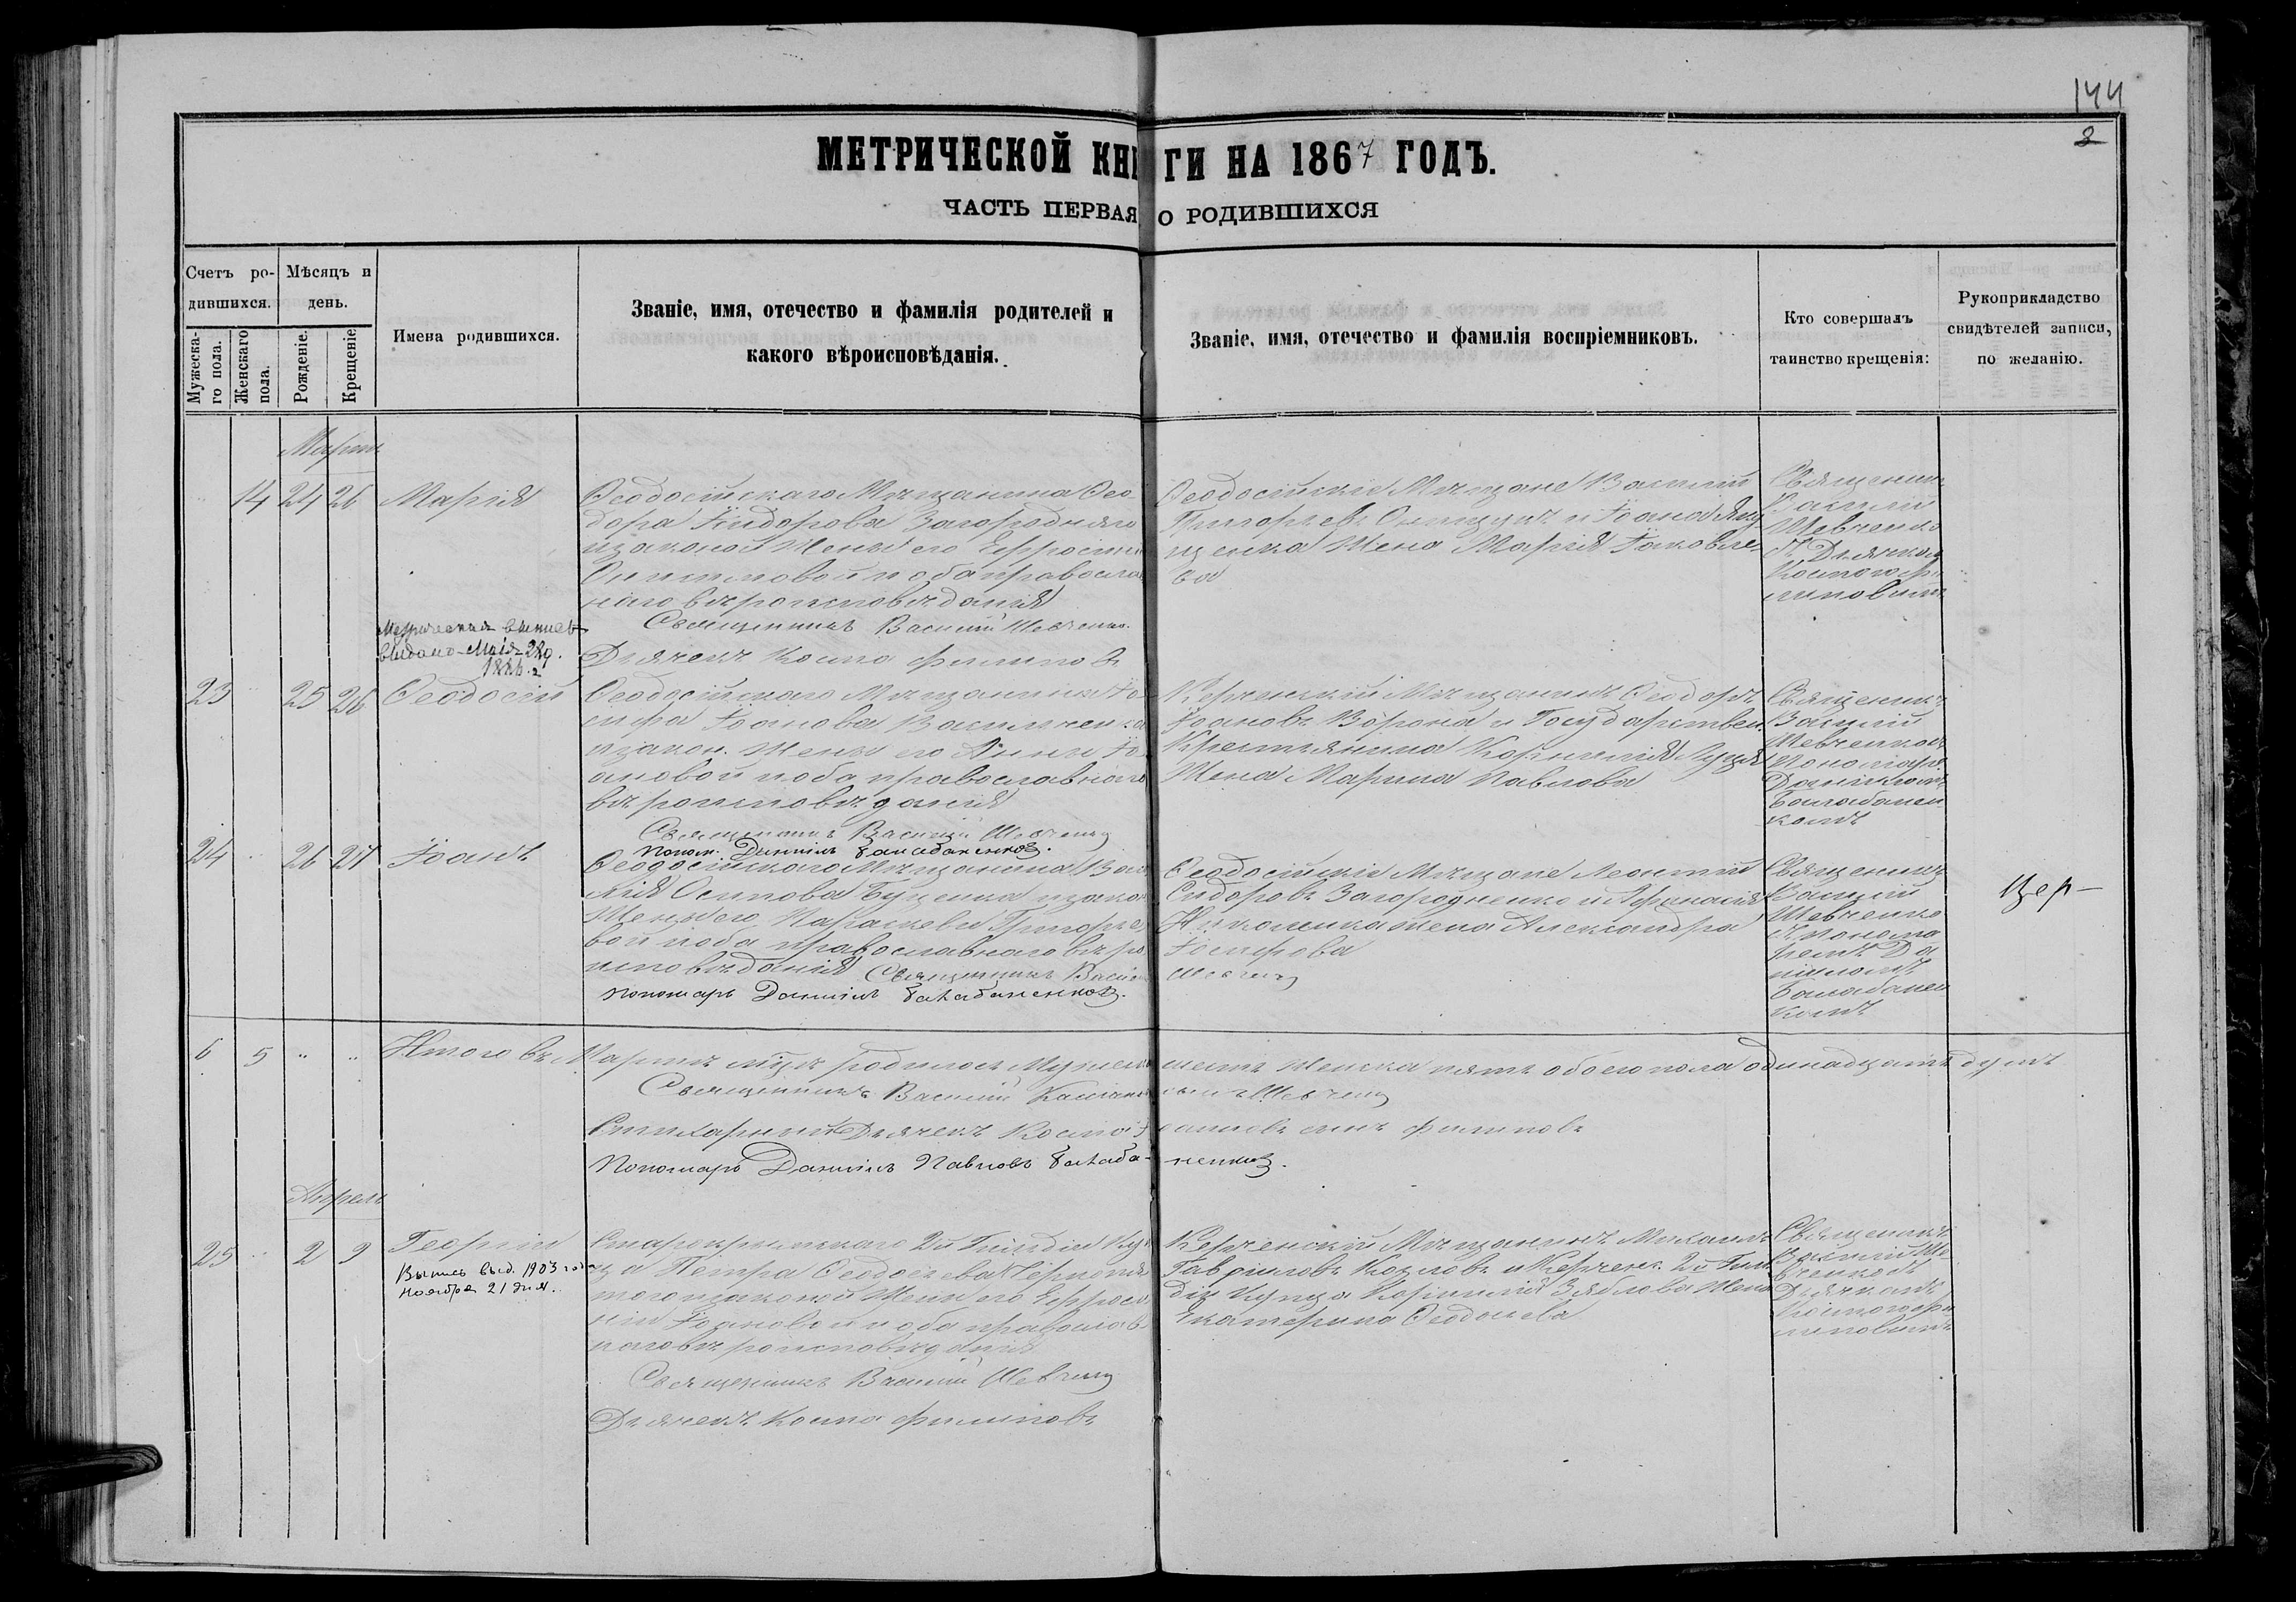 144
2
МЕТРИЧЕСКОЙ КНИГИ НА 1867 ГОДЪ.
ЧАСТЬ ПЕРВАЯ О РОДИВШИХСЯ
Счетъ ро-
дившихся.
Мужеска-
го пола.
Женскаго
пола.
Мѣсяцъ и
день.
Рожденіе.
Крещеніе
Имена родившихся.
Званіе, имя, отечество и фамилія родителей и
какого вѣроисповѣданія.
Званіе, имя, отечество и фамилія воспріемниковъ.
Кто совершалъ
таинство крещенія:
Рукоприкладство
свидѣтелей записи,
по желанію.
Мартъ
14 24 26 Марія
Ѳеодосійскаго Мѣщанина Ѳео
дора Загородняго
изаконой Жены его
иоба правосла
наго вѣроисповѣданія
Священникъ Василій Шевченко.
Дьячекъ Косма Филиповъ
Ѳеодосійскіе Мѣщане Василій
Григорьевъ и Іоана
Жена Марія Іаковле
ва
Священик
Василій
Шевченко
Дьячком
Космою Фи
липовымъ
Метрическая выпись
выдана Маія 28д.
23 25 26 Ѳеодосій
Ѳеодосійскаго Мѣщанина Іо
сифа Іоанова Васильченка
изакон. Жены его Анны Іо
ановой иоба православнаго
вѣроисповѣданія
Священникъ Василій Шевченко
Поном. Даніилъ Балабаненковъ.
Керченскій Мѣщанинъ Ѳеодоръ
Іоановъ Ворона и Государствен.
Крестьянина Корнилія
Жена Марина Павлова
Священикъ
Василій
Шевченко
Пономар.
Даніиломъ
Балабанен
комъ
24 26 27 Іоанъ
Ѳеодосійскаго Мѣщанина Васи
лія Осипова Буценка изакон
Жены его Параскевы Григорье
вой иоба православнаго вѣро
исповѣданія Священникъ Василій Шевченко
Пономаръ Даніилъ Балабаненковъ.
Ѳеодосійскіе Мѣщане Леонтій
Сидоровъ Загородненко и Афанасія
жена Александра
Іосифова
Священикъ
Василій
Шевченко
спонома
ремъ Да
ніиломъ
Балабанен
комъ
Цер-
6 5 " " Итого въ Мартѣ мѣцѣ родилось Мужеска шесть Женска пять обоего пола одинадцать душъ
Священникъ Василій Шевченко
Стихарный Дьячекъ Косма Филиповъ
Пономаръ Даніилъ Павловъ Балаба-ненковъ.
Апрель
25 2 9 Георгій
Выпись выд. 1903 года
ноября 21 дня.
Старокрымскаго 2й Гильдіи Куп
ца Петра Ѳеодосьева
изаконой Жены его Ефроси
ніи Іоановой иоба православ
наго вѣроисповѣданія
Священникъ Василій Шевченко
Дьячекъ Косма Филиповъ
Керченскій Мѣщанинъ Михаилъ
Гавріиловъ Козловъ и Керченс. 2й Гиль
діи Купца Корнилія Зяблова Жена
Екатерина Ѳеодосіева
Священикъ
Василій Ше
вченко
Дьячкомъ
Космою Фи
липовымъ